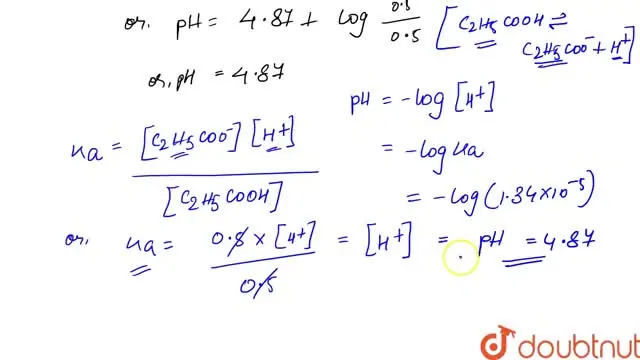 or. pH = 4.87 + log 0.5/0.5 [C2H5COOH ⇌ C2H5COO⁻ + H⁺]
or, pH = 4.87
pH = -log [H⁺]
Ka = [C2H5COO⁻] [H⁺] / [C2H5COOH]
= -log Ka
= -log (1.34×10⁻⁵)
or, Ka = 0.5 × [H⁺] / 0.5 = [H⁺] = pH = 4.87
doubtnut